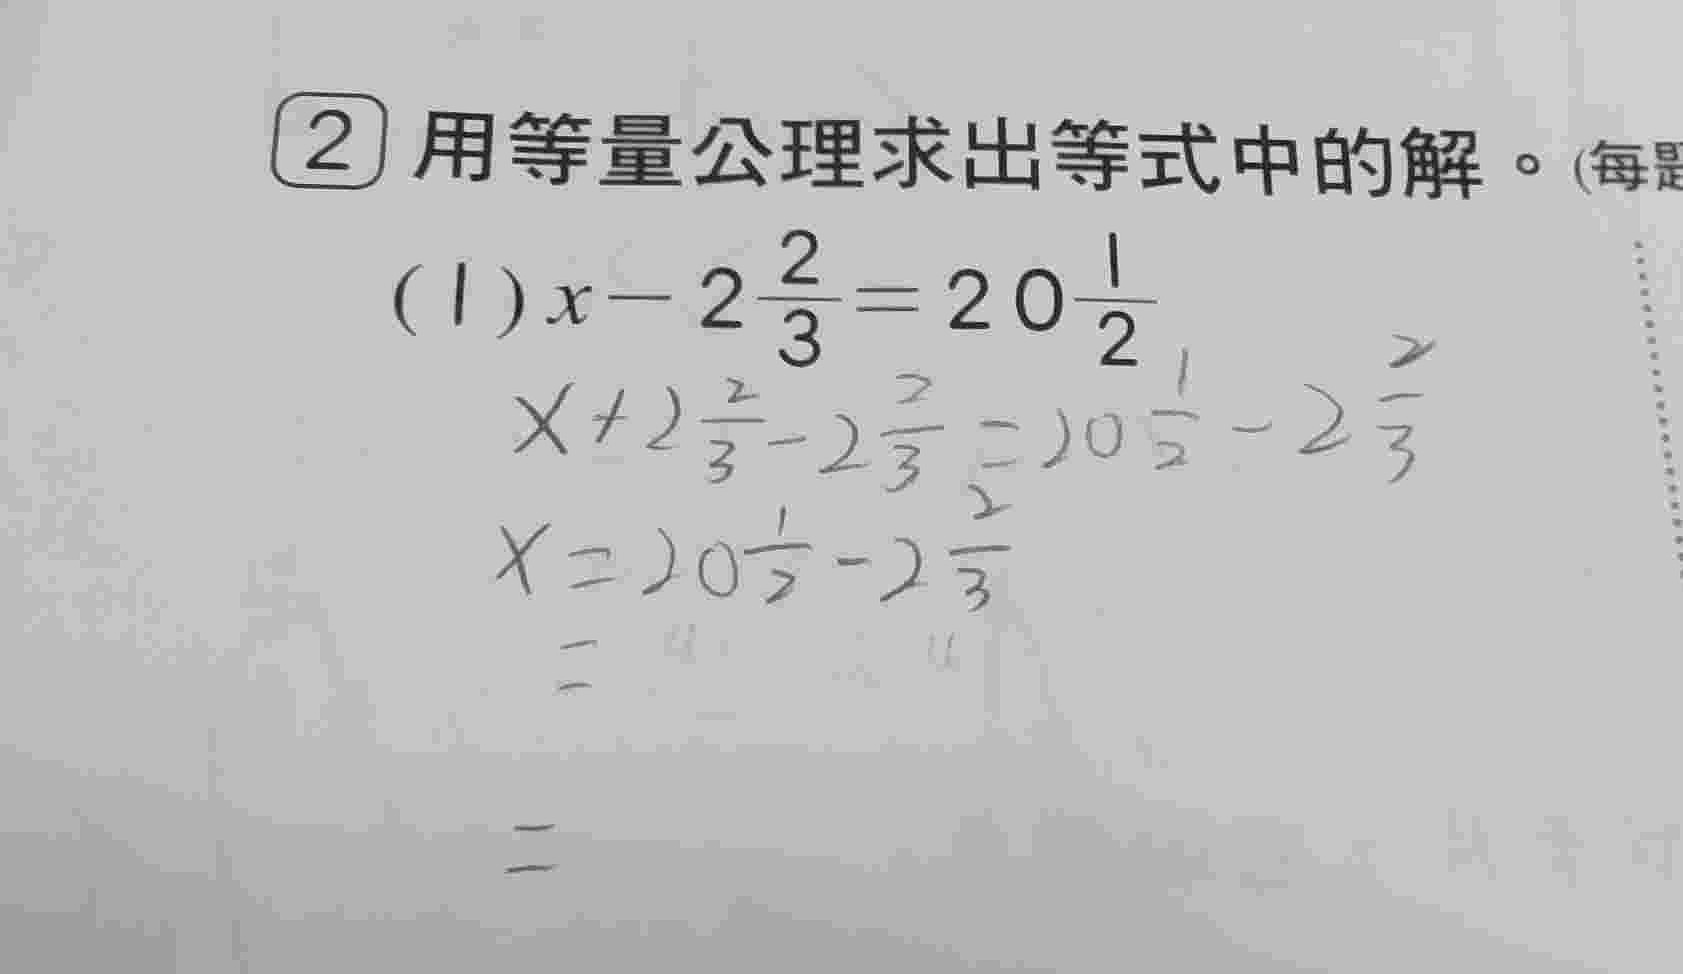 2 用等量公理求出等式中的解。(每題
(1) x - 2 2/3 = 20 1/2
x + 2 2/3 - 2 2/3 = 20 1/2 - 2 2/3
x = 20 1/2 - 2 2/3
=
=